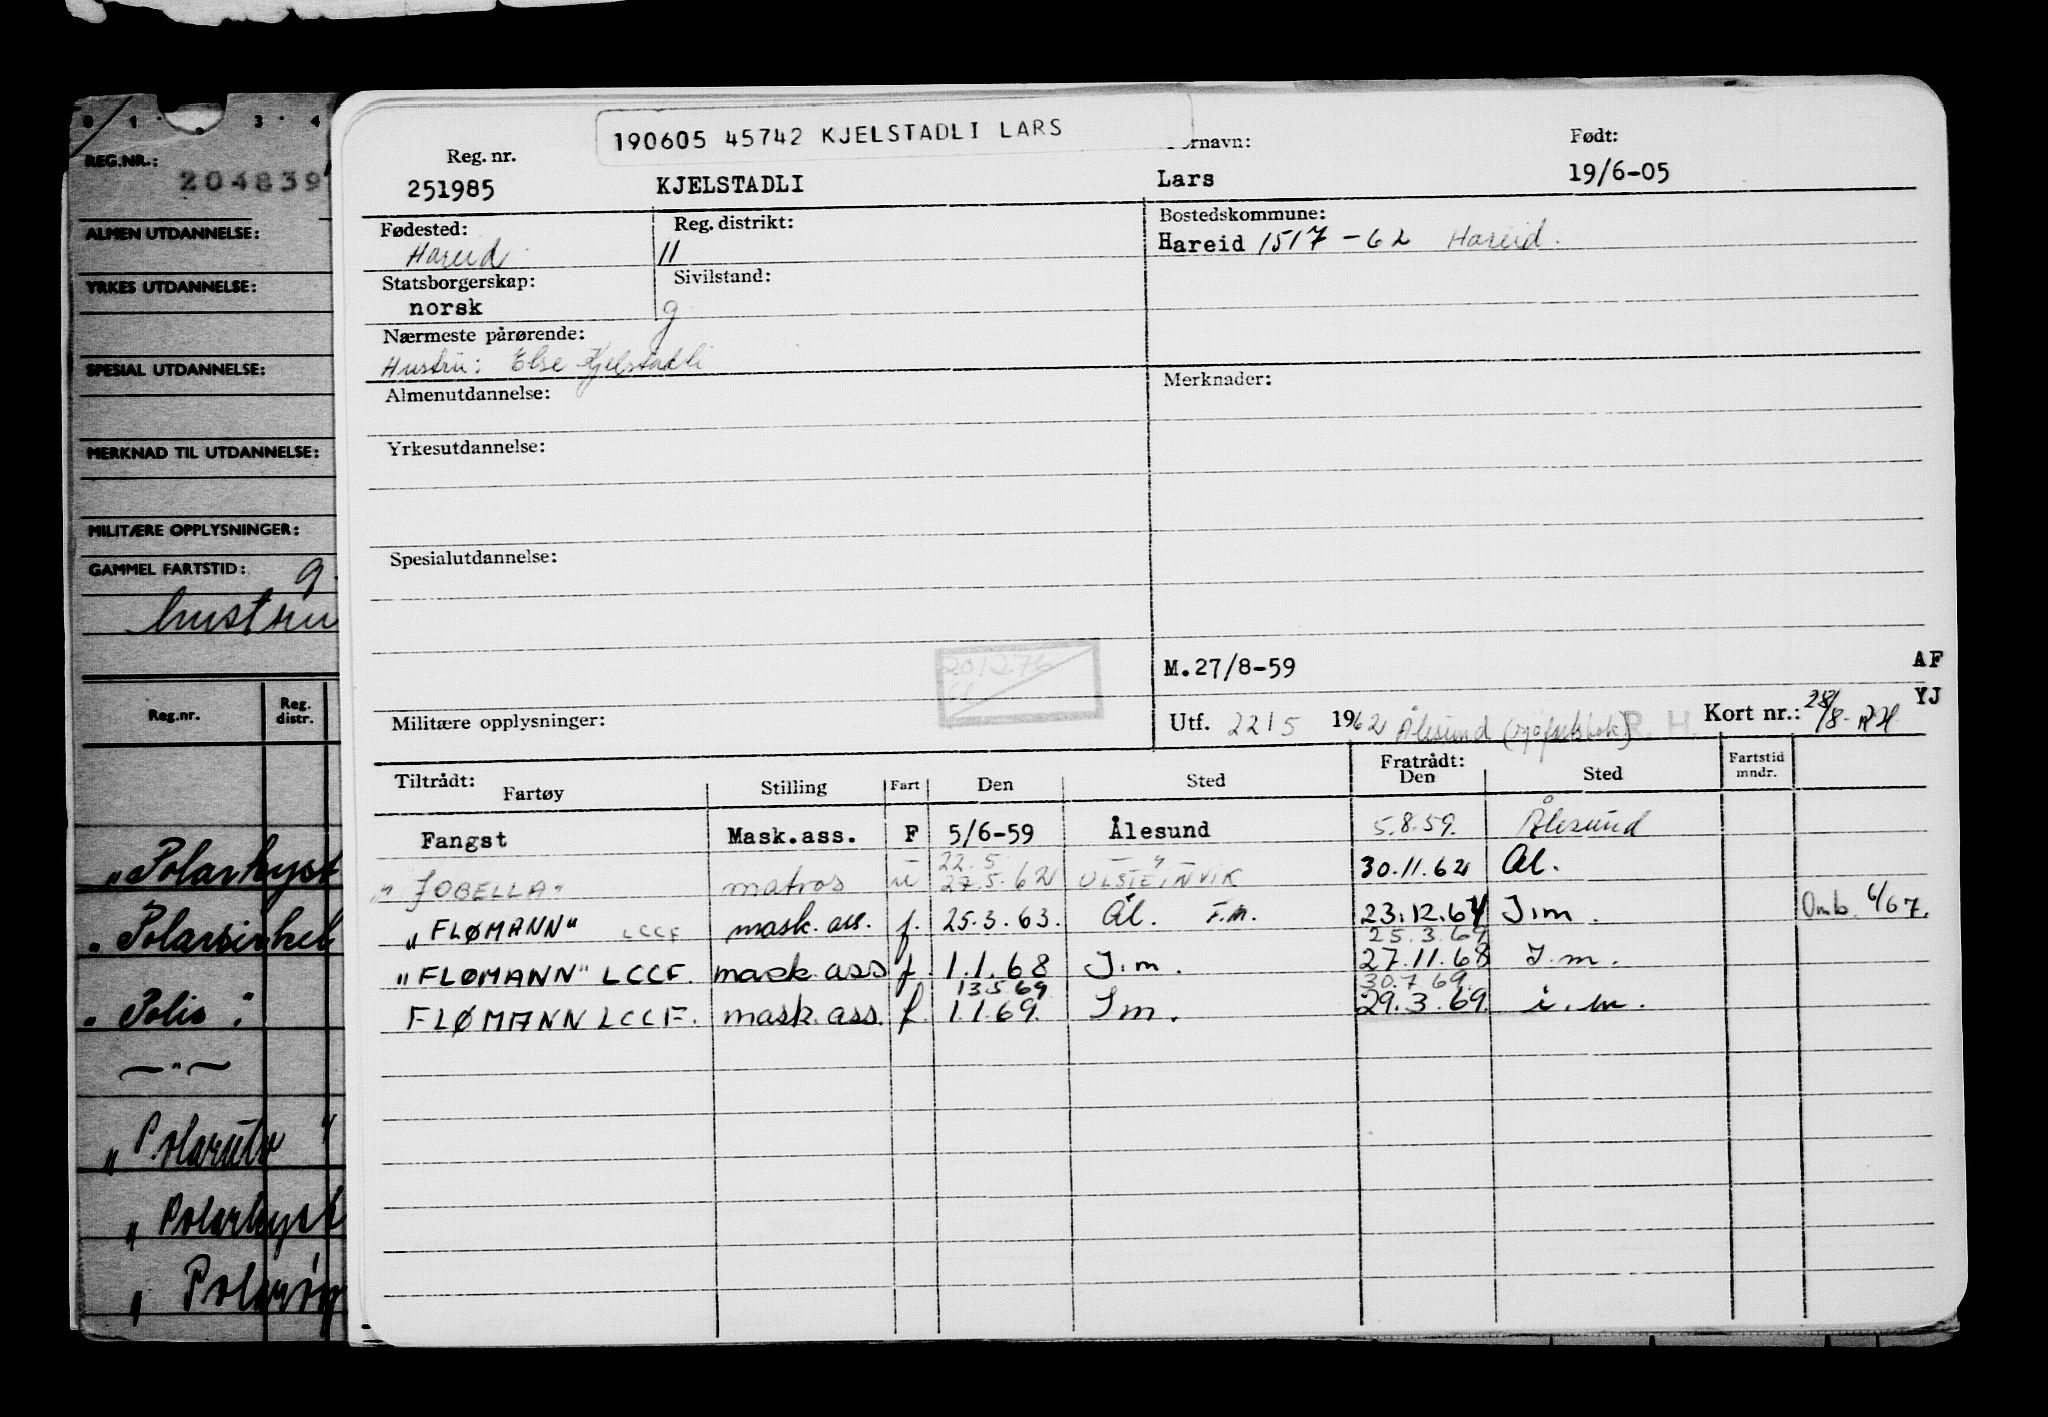 0 1 2 3 4
REG.NR.:
204839
ALMEN UTDANNELSE:
YRKES UTDANNELSE:
SPESIAL UTDANNELSE:
MERKNAD TIL UTDANNELSE:
MILITÆRE OPPLYSNINGER:
GAMMEL FARTSTID: g
hustru
Reg.nr. Reg. distr.
"Polarhyst
"Polarsirkel
"Polis"
— " —
"Polarulv"
"Polarhyst
"Polarbjøn
190605 45742 KJELSTADLI LARS
Reg. nr. ornavn: Født:
251985 KJELSTADLI Lars 19/6-05
Fødested: Reg. distrikt: Bostedskommune:
Hareid 11 Hareid 1517 -62 Hareid.
Statsborgerskap: Sivilstand:
norsk g
Nærmeste pårørende:
Hustru: Else Kjelstadli
Almenutdannelse: Merknader:
Yrkesutdannelse:
Spesialutdannelse:
201276
M.27/8-59 AF
YJ
Militære opplysninger: Utf. 22/5 1962 Ålesund R.H. Kort nr.: 28/8- RH
Tiltrådt: Fratrådt:
Fartøy Stilling Fart Den Sted Den Sted Fartstid mndr.
Fangst Mask.ass. F 5/6-59 Ålesund 5.8.59. Ålesund
22.5
"JOBELLA" matros u 27.5.62 ULSTEINVIK 30.11.62 Ål.
"FLØMANN" LCCF mask. ass. f. 25.3.63. Ål. F.m. 23.12.67 I.m. Omb. 6/67.
25.3.69
"FLØMANN" LCCF. mask. ass f. 1.1.68 I.m. 27.11.68 I.m.
13.5 69 30.7 69.
FLØMANN LCCF. mask. ass. f. 1.1.69. I m. 29.3.69. i.m.